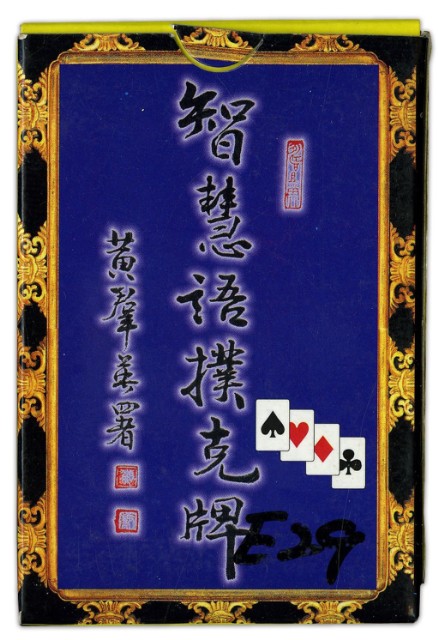 智慧語撲克牌
黃署
E29